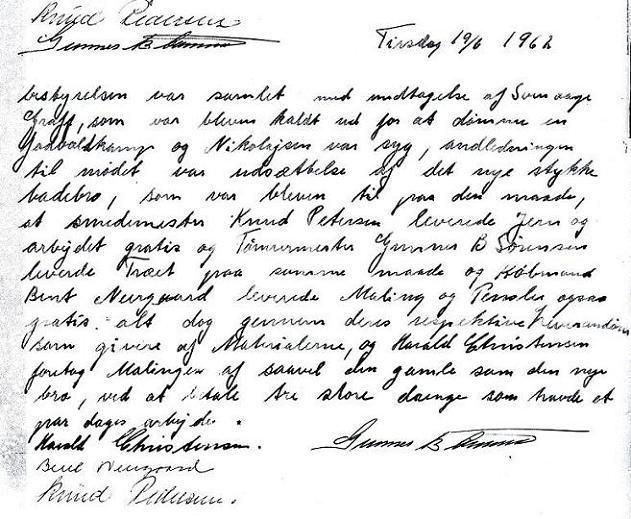 Knud Pedersen
Gunner B Sørensen
Tirsdag 19/6 1962
bestyrelsen var samlet med undtagelse af Svenaage
Graff, som var bleven kaldt ud for at dømme en
Fodboldkamp og Nikolajsen var syg, andledningen
til mødet var udsættelse af det nye stykke
badebro, som var bleven til paa den maade,
at smedemester Knud Petersen leverede Jern og
arbejdet gratis og Tømmermester Gunner B Sørensen
leverde Træet paa samme maade og Købmand
Bent Neergaard leverede Maling og Pensler ogsaa
gratis. alt dog gennem deres respektive leverandører
som givere af Materialerne, og Harald Christensen
foretog Malingen af saavel den gamle som den nye
bro, ved at betale tre store drenge som havde et
par dages arbejde.
Harald Christensen.
Gunner B Sørensen
Bent Neergaard
Knud Pedersen.